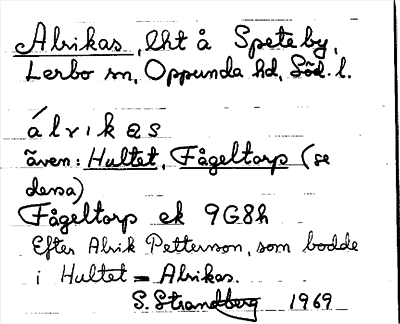 Alrikas, lht å Speteby,
Lerbo sn, Oppunda hd, Söd. l.
álrikas
även: Hultet, Fågeltorp (se
dessa)
Fågeltorp ek 9G8h
Efter Alrik Petterson, som bodde
i Hultet = Alrikas.
S. Strandberg 1969